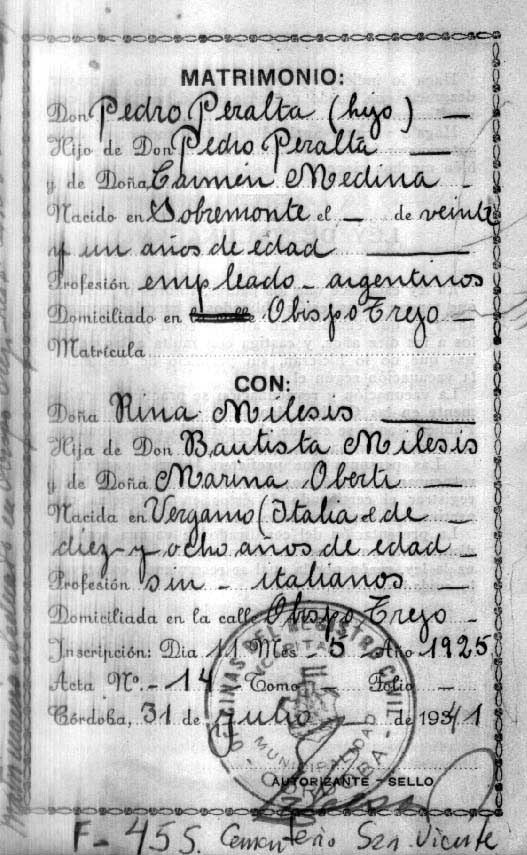 MATRIMONIO:
Don Pedro Peralta (hijo) —
Hijo de Don Pedro Peralta —
y de Doña Carmen Medina -
Nacido en Sobremonte el — de veinte
y un años de edad —
Profesión empleado - argentinos
Domiciliado en la calle Obispo Trejo —
Matrícula
CON:
Doña Rina Milesis —
Hija de Don Bautista Milesis
y de Doña Marina Oberti —
Nacida en Vergamo (Italia el de
diez y ocho años de edad —
Profesión sin - italianos —
Domiciliada en la calle Obispo Trejo -
Inscripción: Dia 11 Mes - 5 Año 1925
Acta Nº. - 14 - Tomo Folio —
Córdoba, 31 de Julio de 1941
OFICINAS DEL REGISTRO CIVIL
MUNICIPALIDAD
CORDOBA
AUTORIZANTE - SELLO
F - 455. Cementerio San Vicente